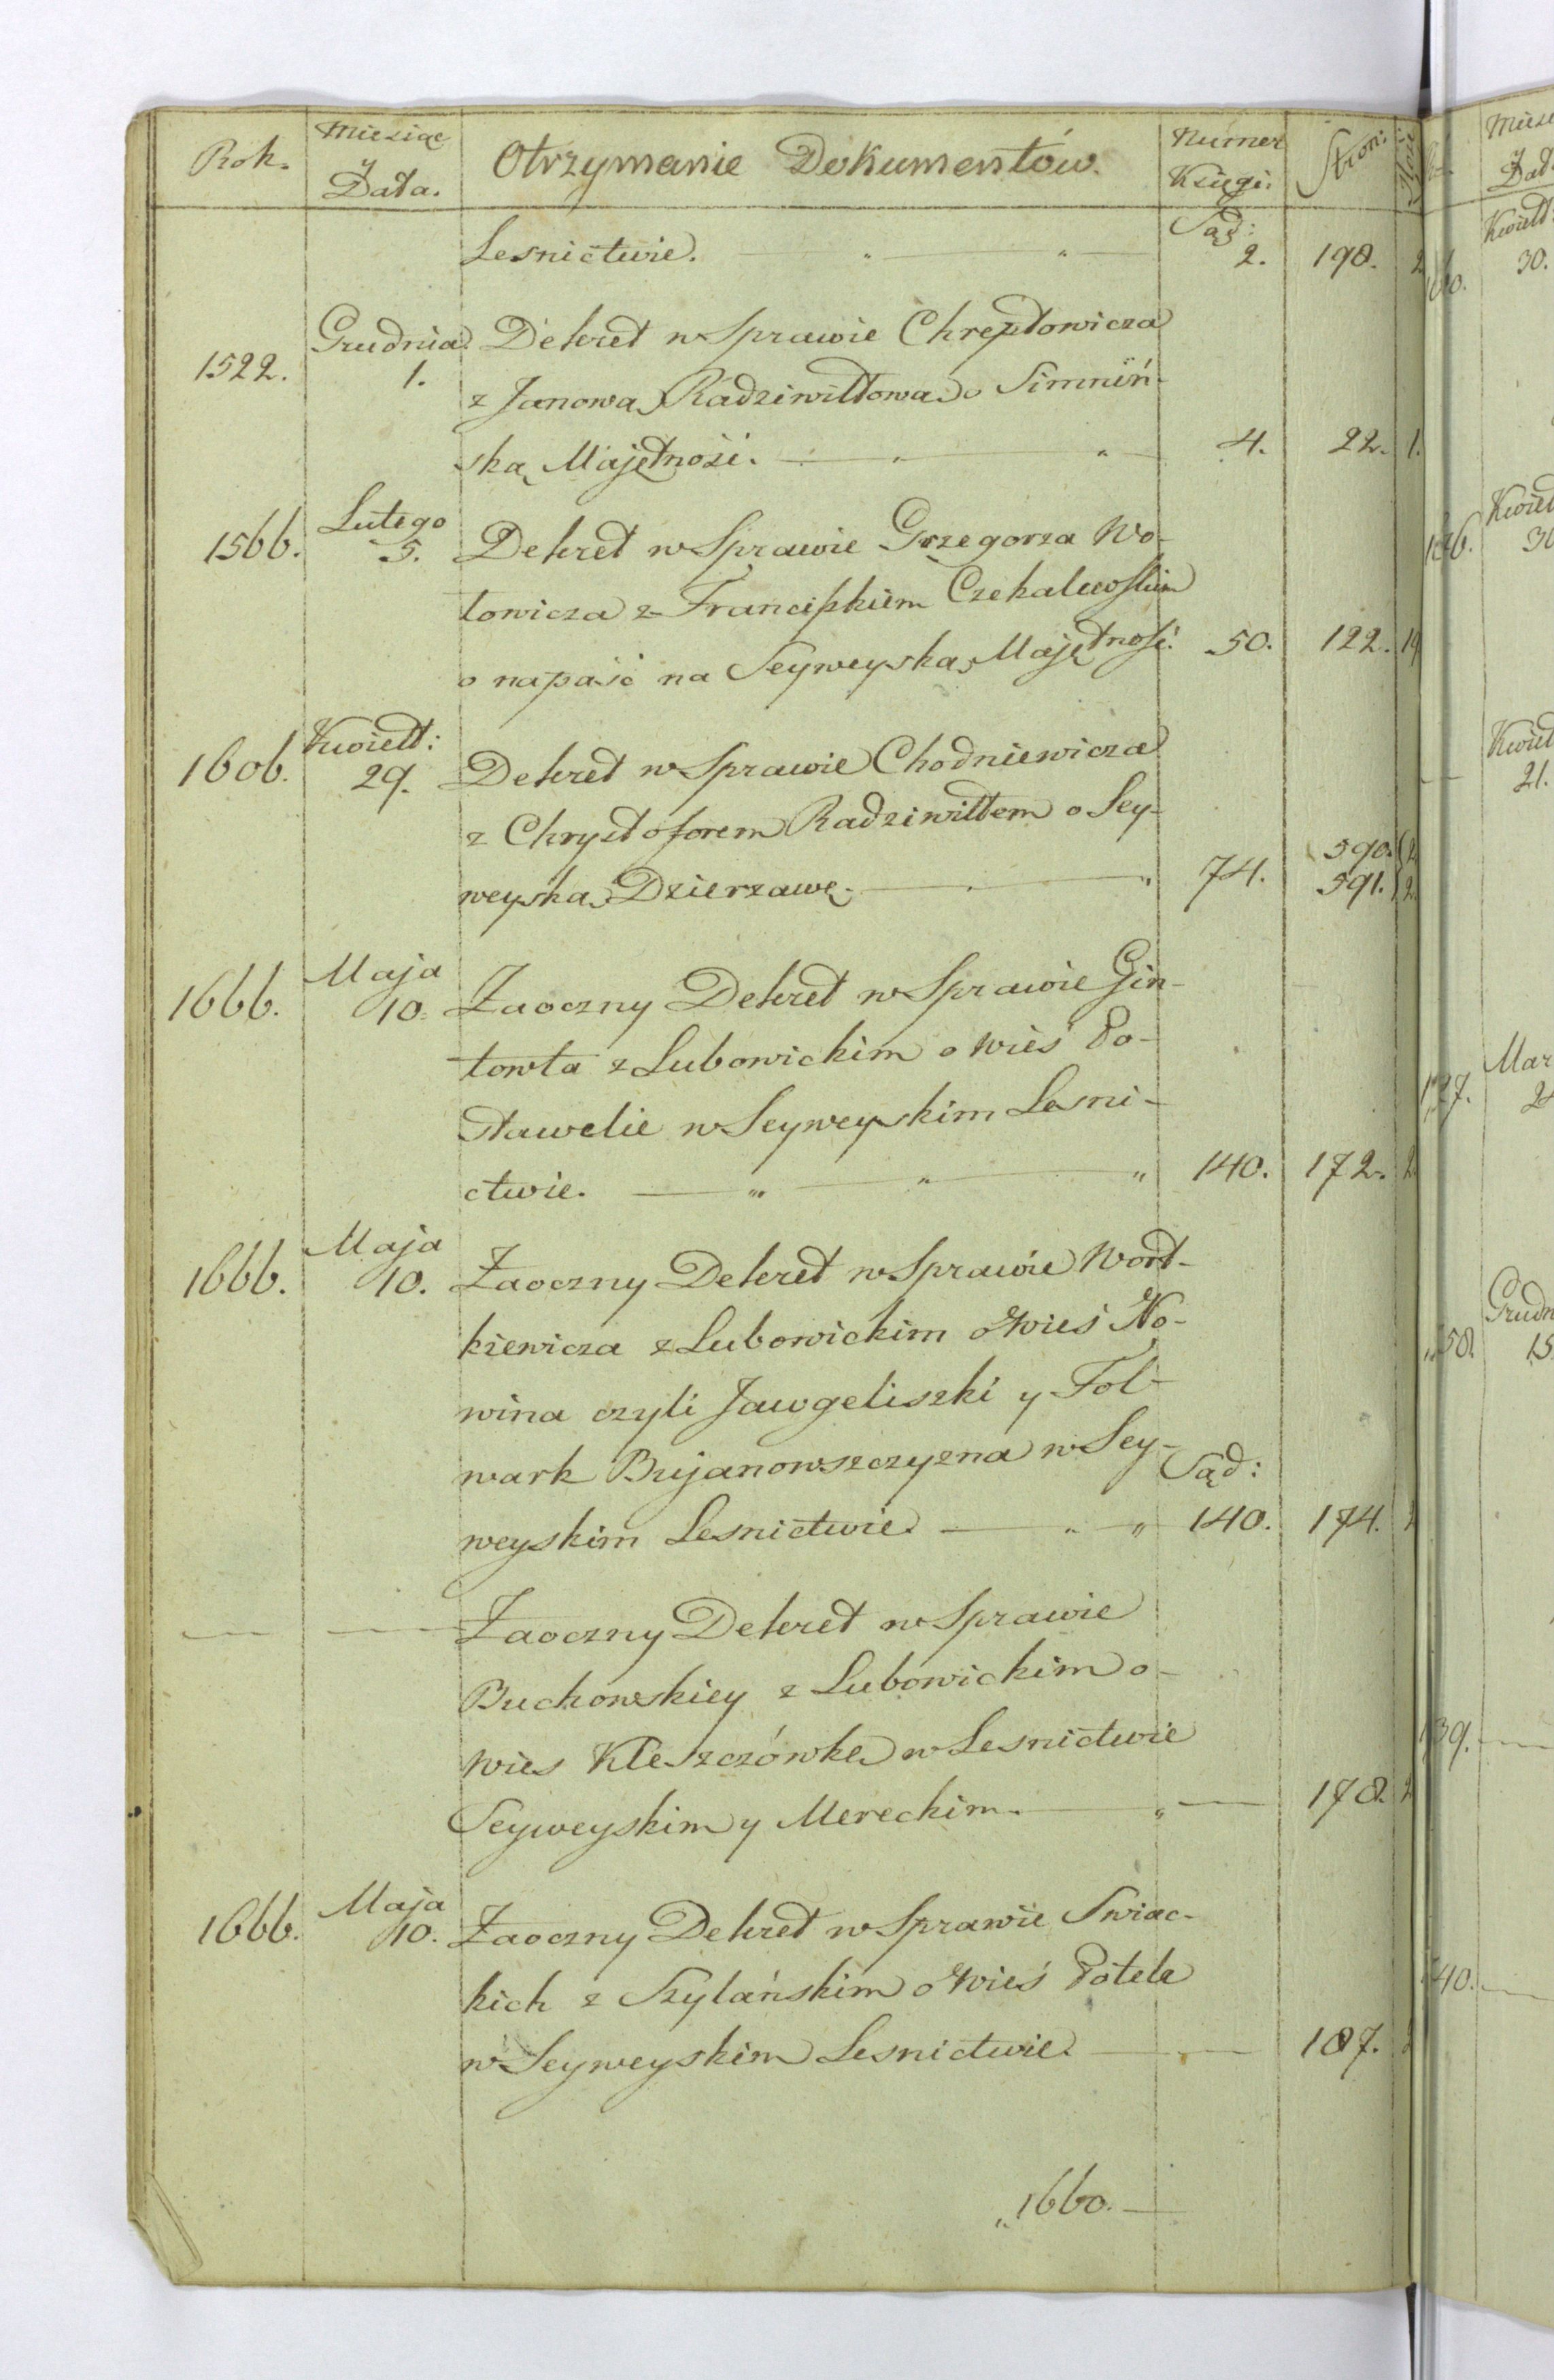 Rok. Miesiąc y Data. Otrzymanie Dokumentów. Numer Księgi: Stron:
Lesnictwie. Sąd: 2. 198. 2
1522. Grudnia 1. Dekret w Sprawie Chreptowicza
z Janową Radziwiłłową o Simniń-
ską Majętność. 4. 22. 1.
1566. Lutego 5. Dekret w Sprawie Grzegorza Wo-
łowicza z Franciszkiem Czekalewskim
o napaść na Seyweyską Majętność. 50. 122. 19
1606. Kwiett: 29. Dekret w Sprawie Chodniewicza
z Chrysztoforem Radziwiłłem o Sey-
weyską Dzierżawę. 74. 590. 591. 2 2.
1666. Maja 10. Zaoczny Dekret w Sprawie Gin-
towta z Lubowickim o Wieś Po-
stawelie w Seyweyskim Lesni-
ctwie. 140. 172. 2
1666. Maja 10. Zaoczny Dekret w Sprawie Wort-
kiewicza z Lubowickim o Wieś No-
wina czyli Jawgeliszki y Fol-
wark Bujanowszczyzna w Sey-
weyskim Lesnictwie. Sąd: 140. 174.
Zaoczny Dekret w Sprawie
Buchowskiey z Lubowickim o
Wies Kleszczówkę w Lesnictwie
Seyweyskim y Mereckim. 178. 2
1666. Maja 10. Zaoczny Dekret w Sprawie Swiac-
kich z Szylańskim o Wieś Potele
w Seyweyskim Lesnictwie. 187.
1660.
Kwiett 30.
Kwiet
Kwiet 21.
Mar
Grudn 15